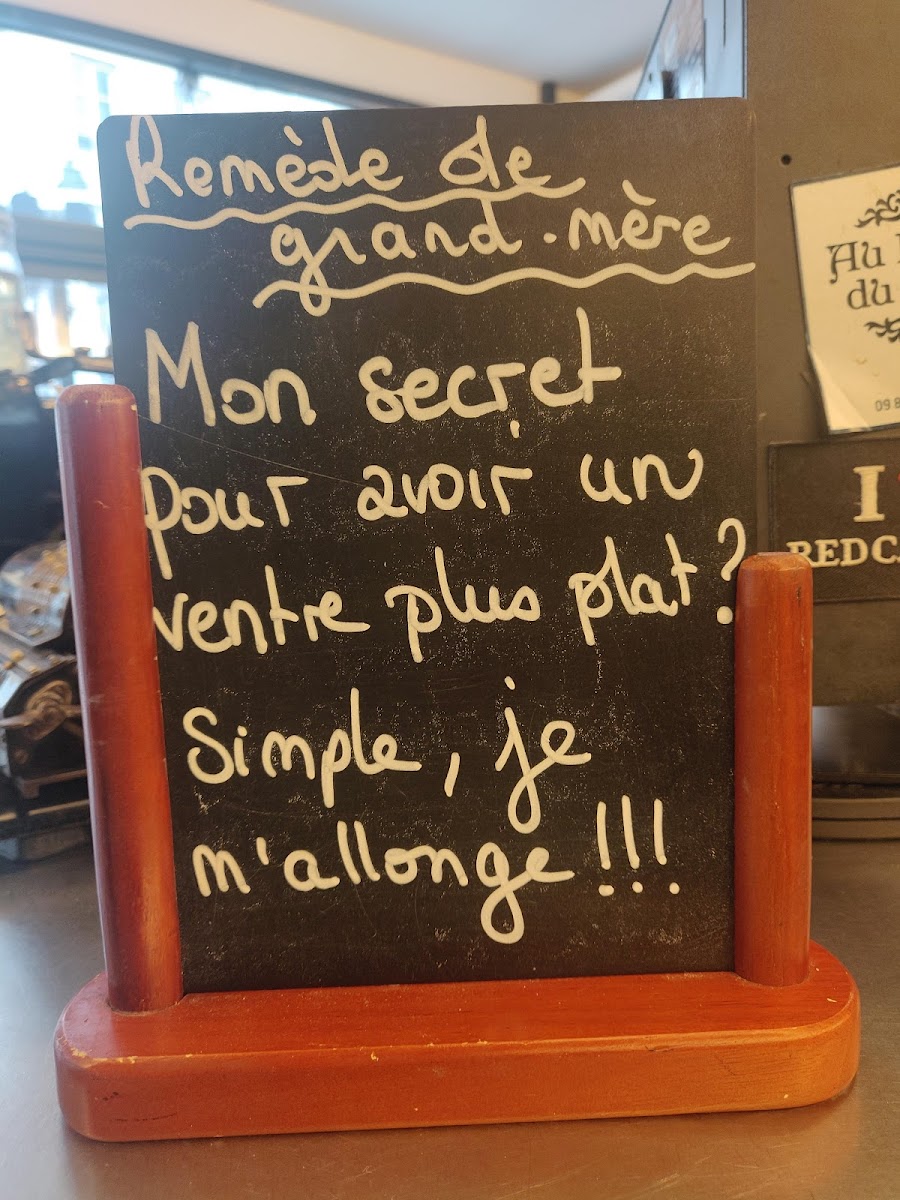 Remède de
grand-mère
Mon secret
pour avoir un
ventre plus plat?
Simple, je
m'allonge!!!
Au
du
09 8
I
REDCA